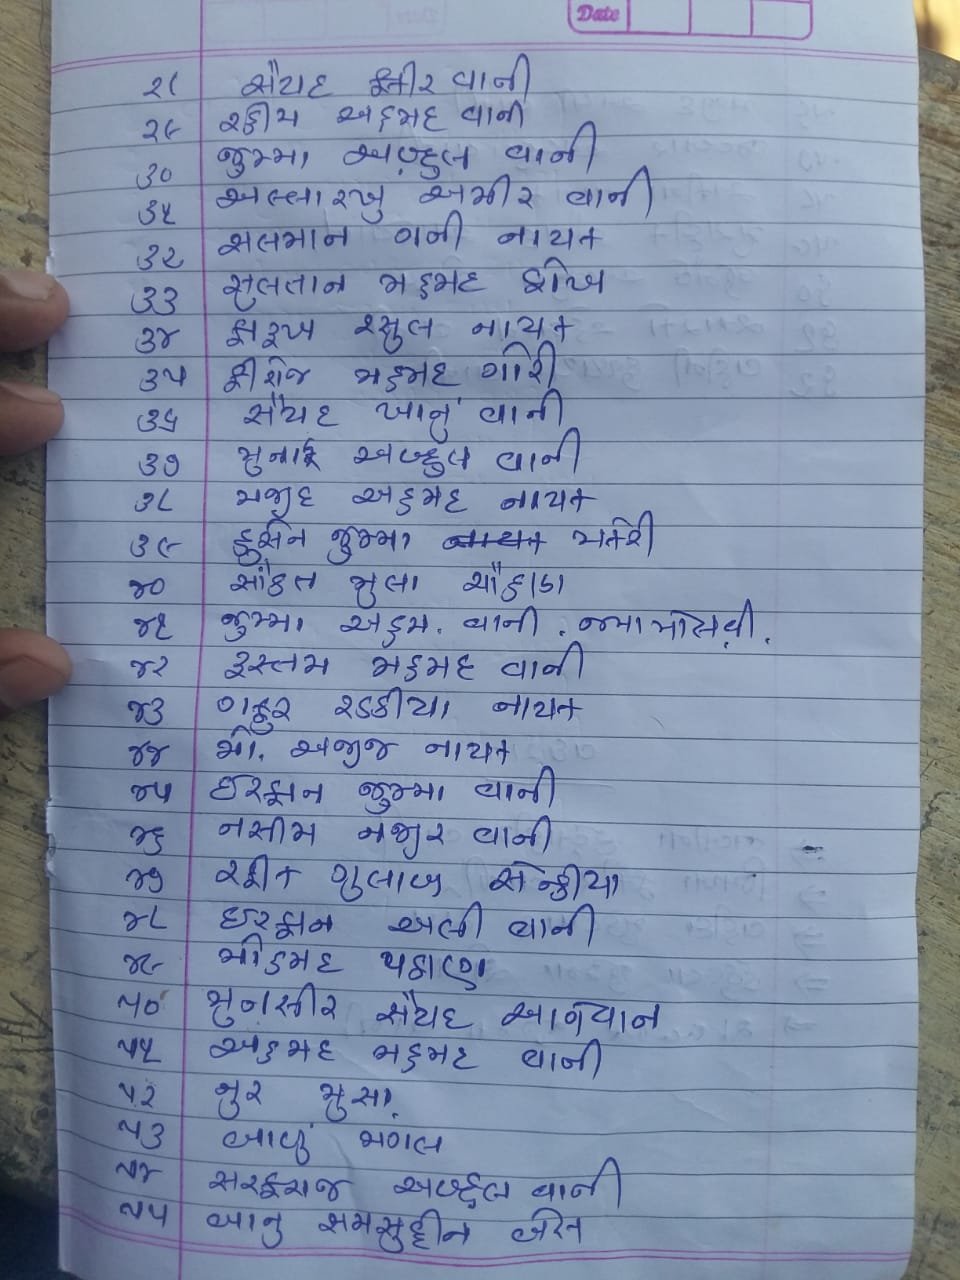 Date
૨૮ સૈયદ કબીર વાની
૨૯ રફીય અહમદ વાની
૩૦ જુમ્મા અબ્દુલ વાની
૩૧ અલ્લારખુ અમીર વાની
૩૨ સલમાન ગની નાયક
૩૩ સુલતાન મહમદ શેખ
૩૪ ફારૂખ રસુલ નાયક
૩૫ ફીરોજ મહમદ ગોરી
૩૬ સૈયદ ખાનું વાની
૩૭ મુનાફ અબ્દુલ વાની
૩૮ મજીદ અહમદ નાયક
૩૯ હુસેન જુમ્મા નાયક
૪૦ સોકત મુલા ચૌહાણ
૪૧ જુમ્મા અહમ. વાની.
૪૨ રૂસ્તમ મહમદ વાની
૪૩ ગફુર નાયક
૪૪ મો. અજીજ નાયક
૪૫ ઈરફાન જુમ્મા વાની
૪૬ નસીમ નજીર વાની
૪૭ રફીક ગુલાબ
૪૮ ઈરફાન અલી વાની
૪૯ મોહમદ પઠાણ
૫૦ મુનસીર સૈયદ આગવાન
૫૧ અહમદ મહમદ વાની
૫૨ નુર મુસા
૫૩ બાબુ મંગલ
૫૪ સરફરાજ અબ્દુલ વાની
૫૫ બાનુ સમસુદ્દીન